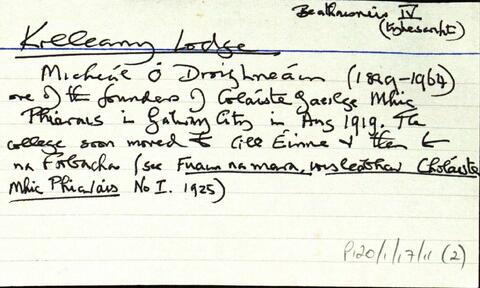 Beathaisnéis IV
Killeany Lodge.
Micheál Ó Droighneáin (1889-1964)
one of the founders of Coláiste Gaeilge Mhic
Phiarais in Galway City in Aug 1919. The
college soon moved to Cill Éinne & then to
na Forbacha (see Fuaim na mara,
Mhic Phiarais No I. 1925)
P120/1/17/11 (2)